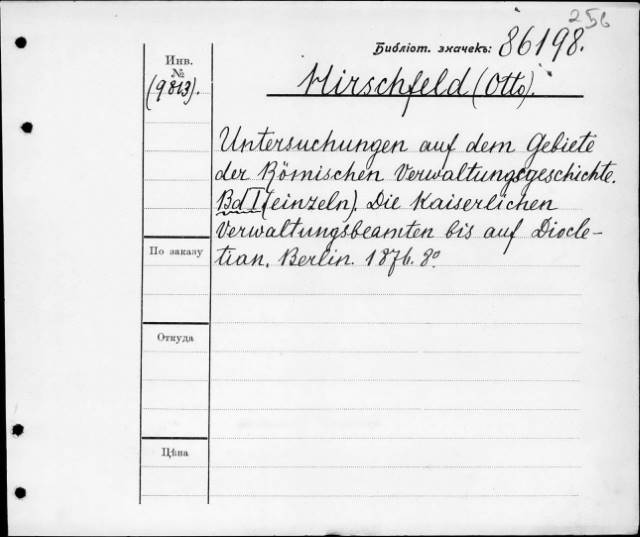 256
Библіот. значекъ: 86198.
Инв.
№
(9813).
Hirschfeld (Otto).
Untersuchungen auf dem Gebiete
der Römischen Verwaltungsgeschichte.
Bd I (einzeln). Die Kaiserlichen
Verwaltungsbeamten bis auf Diocle-
tian. Berlin. 1876. 8º
По заказу
Откуда
Цѣна